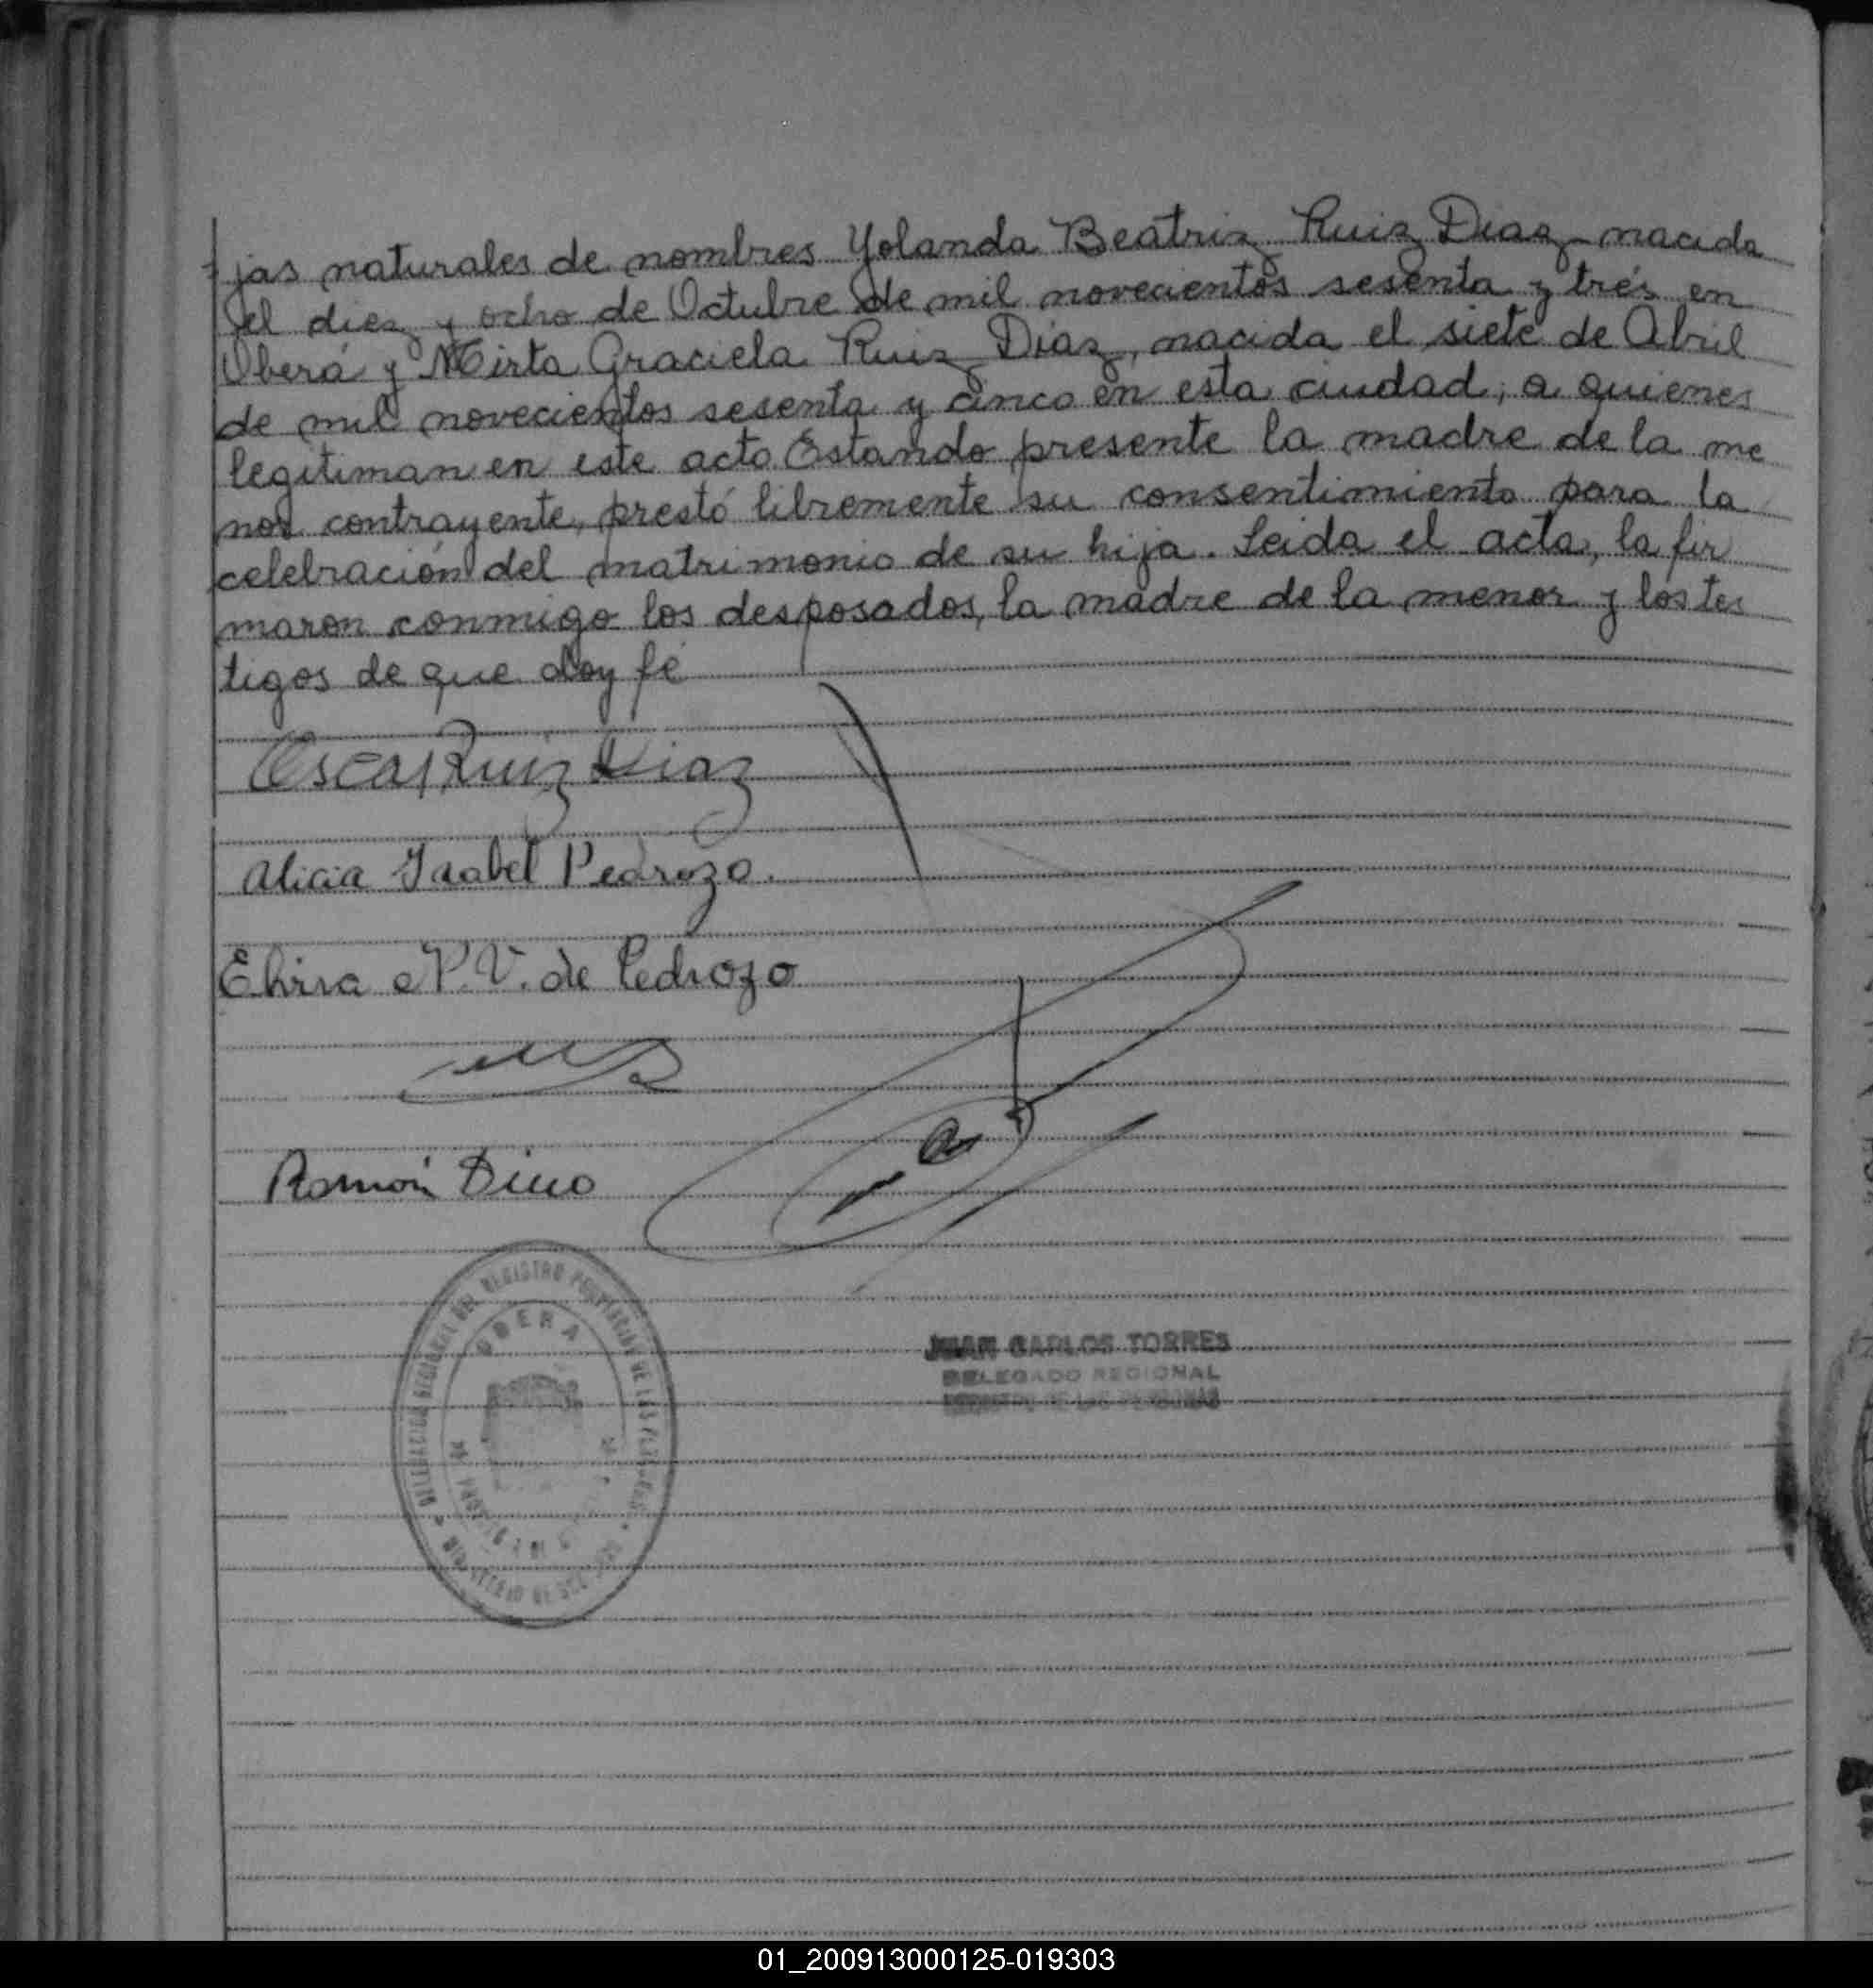 jas naturales de nombres Yolanda Beatriz Ruiz Diaz nacida
el diez y ocho de Octubre de mil novecientos sesenta y trés en
Oberá y Mirta Graciela Ruiz Diaz, nacida el siete de Abril
de mil novecientos sesenta y cinco en esta ciudad, a quienes
legitiman en este acto. Estando presente la madre de la me
nor contrayente, prestó libremente su consentimiento para la
celebración del matrimonio de su hija. Leida el acta, la fir
maron conmigo los desposados, la madre de la menor y los tes
tigos de que doy fé
Oscar Ruiz Diaz
Alicia Isabel Pedrozo.
P. V. de Pedrozo
Ramón
OBERA
JUAN CARLOS TORRES
DELEGADO REGIONAL
REGISTRO DE LAS PERSONAS
01_200913000125-019303